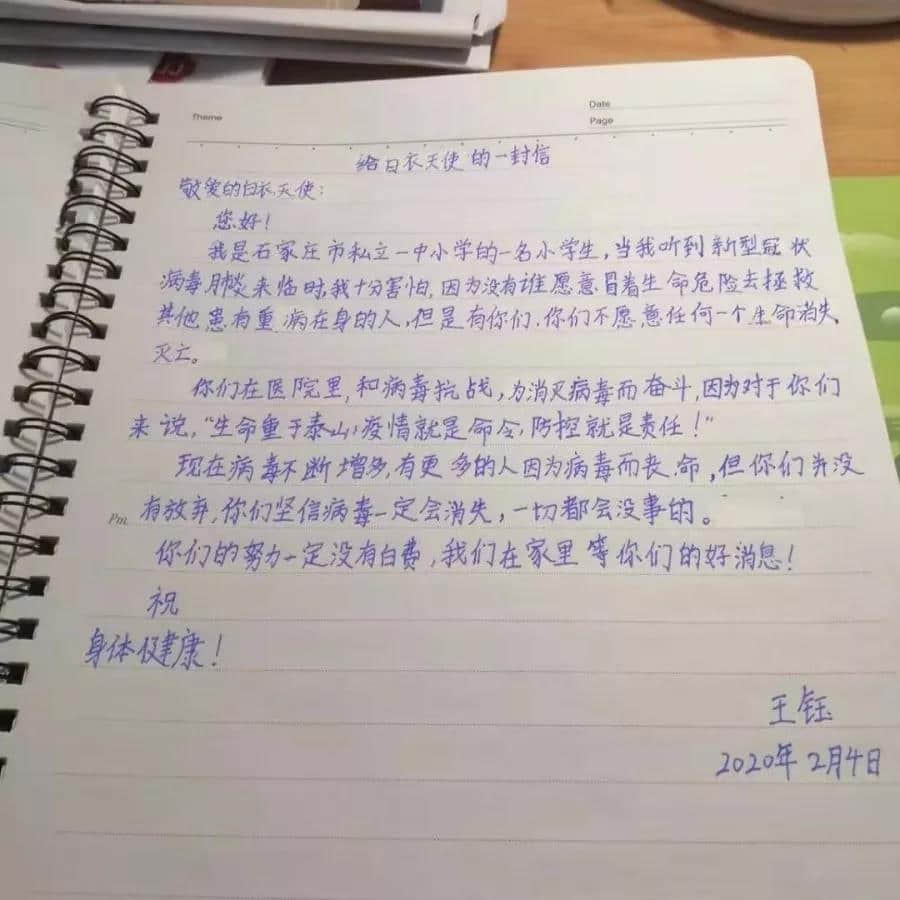 Theme
Date
Page
给白衣天使的一封信
敬爱的白衣天使：
您好！
我是石家庄市私立一中小学的一名小学生，当我听到新型冠状
病毒肺炎来临时，我十分害怕，因为没有谁愿意冒着生命危险去拯救
其他患有重病在身的人，但是有你们，你们不愿意任何一个生命消失
灭亡。
你们在医院里，和病毒抗战，为消灭病毒而奋斗，因为对于你们
来说，“生命重于泰山，疫情就是命令，防控就是责任！”
现在病毒不断增多，有更多的人因为病毒而丧命，但你们并没
有放弃，你们坚信病毒一定会消失，一切都会没事的。
Pm
你们的努力一定没有白费，我们在家里等你们的好消息！
祝
身体健康！
王钰
2020年2月4日